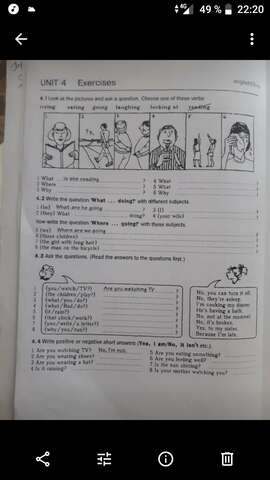 49 % 22:20
UNIT 4 Exercises
4.1 Look at the pictures and ask a question. Choose one of these verbs:
crying eating going laughing looking at reading
1 2 3 4 5 6 7
1 What is she reading ?
2 Where ?
3 Why ?
4 What ?
5 What ?
6 Why ?
4.2 Write the question 'What ... doing?' with different subjects.
1 (he) What are he going
2 (they) What doing?
3 (I)
4 (your wife)
Now write the question 'Where ... going?' with these subjects.
5 (we) Where are we going
6 (those children)
7 (the girl with long hair)
8 (the man on the bicycle)
4.3 Ask the questions. (Read the answers to the questions first.)
1 (you/watch/TV?) Are you watching TV
2 (the children/play?)
3 (what/you/do?)
4 (what/ /do?)
5 (it/rain?)
6 (that clock/work?)
7 (you/write/a letter?)
8 (why/you/run?)
No, you can turn it off.
No, they're asleep.
I'm cooking my dinner.
He's having a bath.
No, not at the moment.
No, it's broken.
Yes, to my sister.
Because I'm late.
4.4 Write positive or negative short answers (Yes, I am/No, it isn't etc.).
1 Are you watching TV? No, I'm not.
2 Are you wearing shoes?
3 Are you wearing a hat?
4 Is it raining?
5 Are you eating something?
6 Are you feeling well?
7 Is the sun shining?
8 Is your mother watching you?